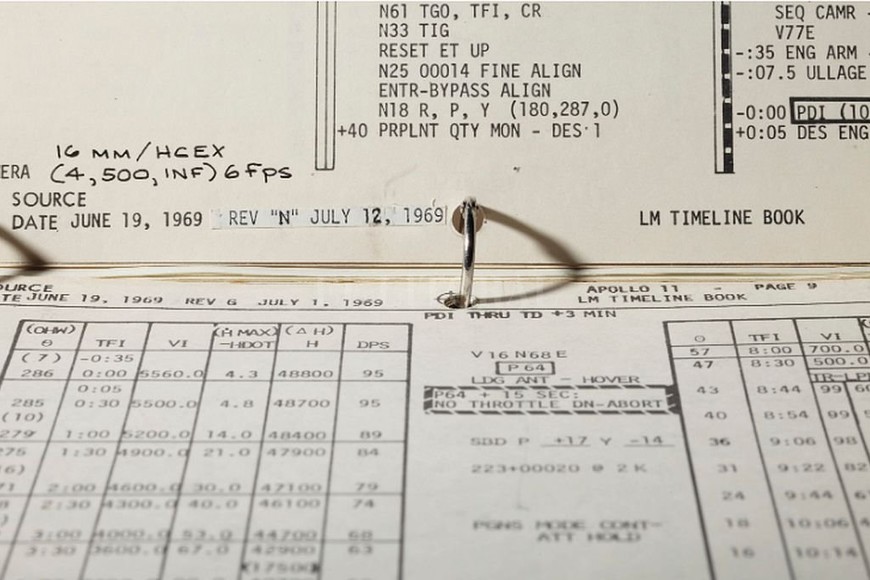 N61 TGO, TFI, CR
N33 TIG
RESET ET UP
N25 00014 FINE ALIGN
ENTR-BYPASS ALIGN
N18 R, P, Y (180,287,0)
+40 PRPLNT QTY MON - DES·1
SEQ CAMR -
V77E
-:35 ENG ARM
-:07.5 ULLAGE
-0:00 PDI (10
+0:05 DES ENG
16 MM/HCEX
ERA (4,500,INF) 6 fps
SOURCE
DATE JUNE 19, 1969 REV "N" JULY 12, 1969
LM TIMELINE BOOK
OURCE
TE JUNE 19, 1969 REV G JULY 1, 1969
APOLLO 11 - PAGE 9
LM TIMELINE BOOK
PDI THRU TD +3 MIN
(OHW) (Ḣ MAX) (Δ H)
θ TFI VI -HDOT H DPS
(7) -0:35
286 0:00 5560.0 4.3 48800 95
0:05
285 0:30 5500.0 4.8 48700 95
(10)
279 1:00 5200.0 14.0 48400 89
275 1:30 4900.0 21.0 47900 84
6)
71 2:00 4600.0 30.0 47100 79
2:30 4300.0 40.0 46100 74
3:00 4000.0 53.0 44700 68
3:30 3600.0 67.0 42900 63
V16 N68 E
P 64
LDG ANT - HOVER
P64 + 15 SEC:
NO THROTTLE DN-ABORT
SBD P +17 Y -14
223+00020 @ 2 K
PGNS MODE CONT-
ATT HOLD
θ TFI VI
57 8:00 700.0
47 8:30 500.0
TR-LP
43 8:44 99 60
40 8:54 99
36 9:06 98
31 9:22 82
24 9:44
18 10:06
16 10:14